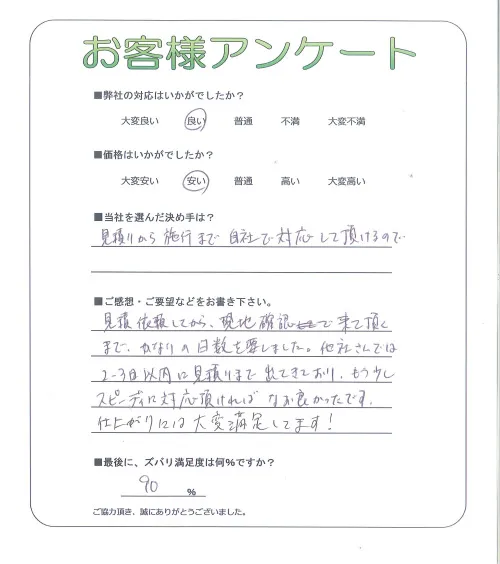 お客様アンケート
■弊社の対応はいかがでしたか？
大変良い 良い 普通 不満 大変不満
■価格はいかがでしたか？
大変安い 安い 普通 高い 大変高い
■当社を選んだ決め手は？
見積りから施行まで自社で対応して頂けるので
■ご感想・ご要望などをお書き下さい。
見積依頼してから、現地確認で来て頂く
まで、かなりの日数を要しました。他社さんでは
2-3日以内に見積りまで出てきており、もう少し
スピーディに対応頂ければなお良かったです。
仕上がりには大変満足してます！
■最後に、ズバリ満足度は何％ですか？
90 ％
ご協力頂き、誠にありがとうございました。